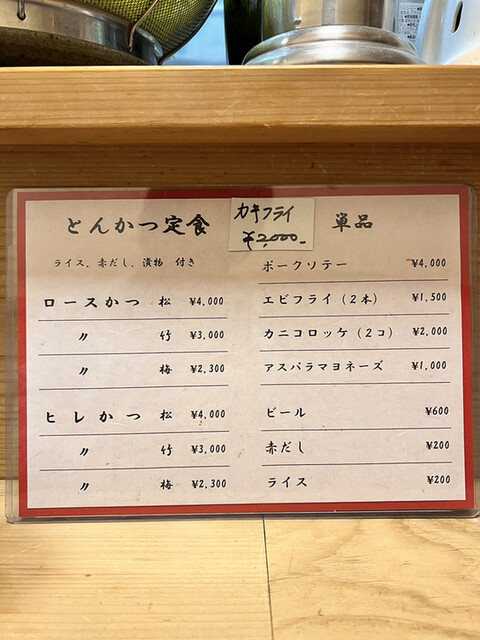 とんかつ定食
ライス、赤だし、漬物 付き
ロースかつ 松 ¥4,000
〃 竹 ¥3,000
〃 梅 ¥2,300
ヒレかつ 松 ¥4,000
〃 竹 ¥3,000
〃 梅 ¥2,300
カキフライ
¥2,000-
単品
ポークソテー ¥4,000
エビフライ(2本) ¥1,500
カニコロッケ(2コ) ¥2,000
アスパラマヨネーズ ¥1,000
ビール ¥600
赤だし ¥200
ライス ¥200